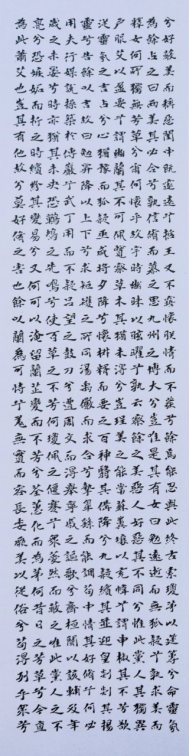 兮好蔽美而稱惡閨中既邃遠兮哲王又不寤懷朕情而不發兮餘焉能忍與此終古索瓊茅以筳篿兮命靈氛
為餘占之曰兩美其必合兮孰信脩而慕之思九州之博大兮豈唯是其有女曰勉遠逝而無狐疑兮孰求美而
釋女何所獨無芳草兮爾何懷乎故宇時幽昧以眩曜兮孰云察餘之美惡人好惡其不同兮惟此黨人其獨異
戶服艾以盈要兮謂幽蘭其不可佩覽察草木其猶未得兮豈珵美之能當蘇糞壤以充幃兮謂申椒其不芳欲
從靈氛之吉占兮心猶豫而狐疑巫咸將夕降兮懷椒糈而要之百神翳其備降兮九疑繽其並迎皇剡剡其揚
靈兮告餘以吉故曰勉升降以上下兮求矩矱之所同湯禹儼而求合兮摯咎繇而能調苟中情其好脩兮何必
用夫行媒說操築於傅巖兮武丁用而不疑呂望之鼓刀兮遭周文而得舉甯戚之謳歌兮齊桓聞以該輔及年
歲之未晏兮時亦猶其未央恐鵜鴃之先鳴兮使百草之不芳何瓊佩之偃蹇兮眾薆然而蔽之惟此黨人之不
亮兮恐嫉妒而折之時繽紛其變易兮又何可以淹留蘭芷變而不芳兮荃蕙化而為茅何昔日之芳草兮今直
為此蕭艾也豈其有他故兮莫好脩之害也餘以蘭為可恃兮羌無實而容長委厥美以從俗兮苟得列乎眾芳